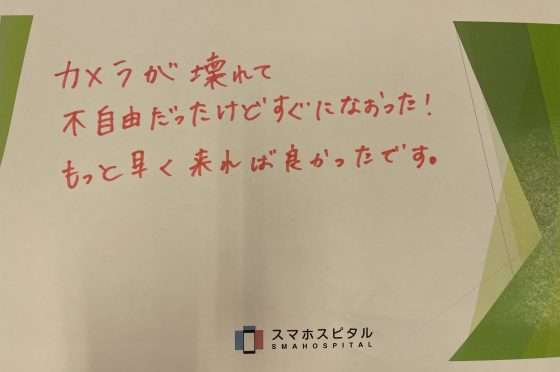 カメラが壊れて
不自由だったけどすぐになおった!
もっと早く来れば良かったです。
スマホスピタル
SMAHOSPITAL